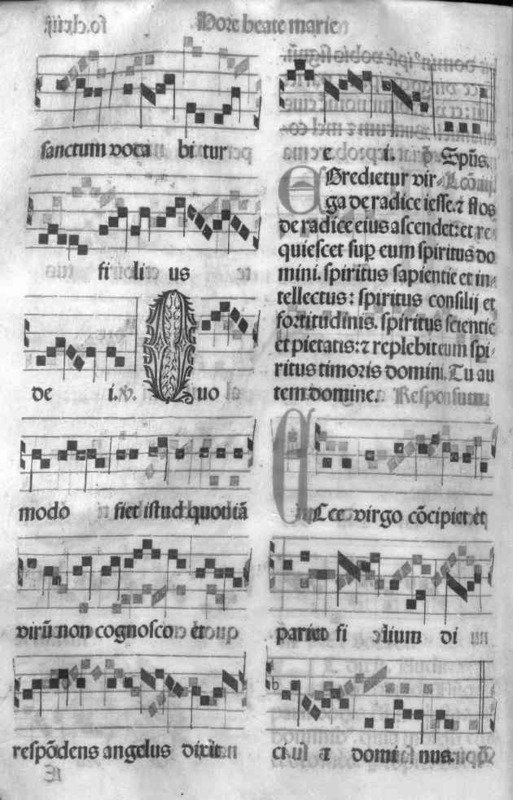 Hore beate marie
sanctum voca bi tur
fi li us
de i. ℣. Quo
modo fiet istud quoniā
virū non cognosco: et
respōdens angelus dixit
e i. Spūs.
EGredietur vir-
ga de radice iesse. ⁊ flos
de radice eius ascendet: et re-
quiescet sup eum spiritus do
mini. spiritus sapientie et in-
tellectus: spiritus consilij et
fortitudinis. spiritus scientie
et pietatis: ⁊ replebit eum spi-
ritus timoris domini. Tu au
tem domine. Responsum
ECce virgo cōcipiet et
pariet fi lium di
cit ul ⁊ domi nus.